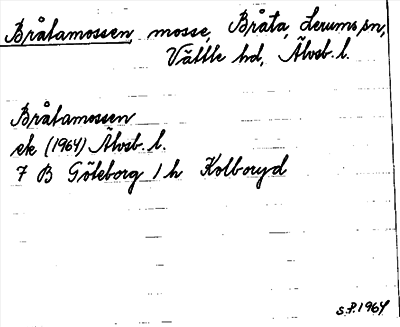 Bråtamossen, mosse, Bråta, Lerums sn,
Vättle hd, Älvsb. l.
Bråtamossen
ek (1964) Älvsb. l.
7 B Göteborg 1 h Kolboryd
S.P. 1964